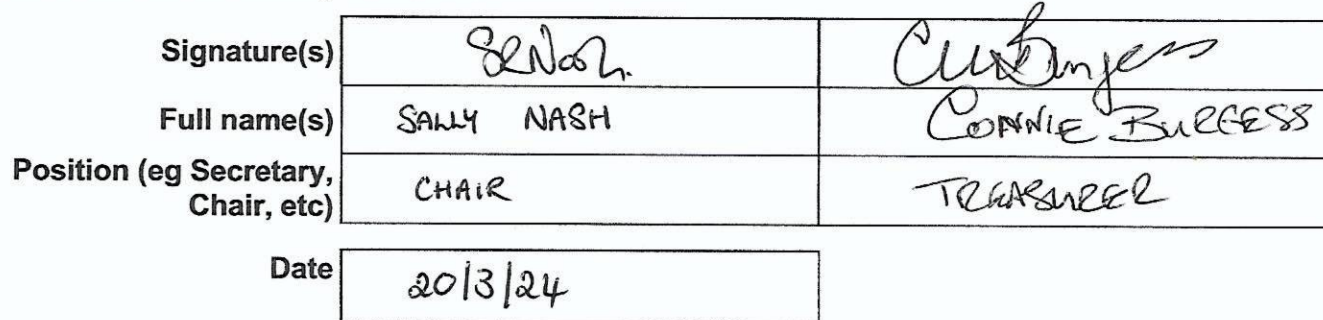 Signature(s) SRNash. CM Burgess
Full name(s) SALLY NASH CONNIE BURGESS
Position (eg Secretary, Chair, etc) CHAIR TREASURER
Date 20/3/24